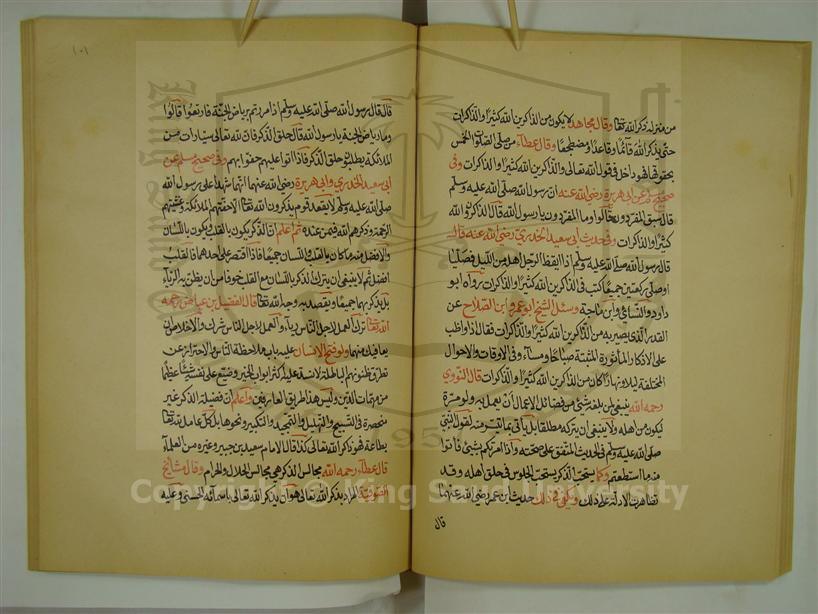 من منزله ذكر الله تعالى وقال مجاهد لا يكون من الذاكرين الله كثيرًا والذاكرات
حتى يذكر الله قائمًا وقاعدًا ومضطجعًا وقال عطاء من صلى الصلوات الخمس
بحقوقها فهو داخل في قول الله تعالى والذاكرين الله كثيرًا والذاكرات وفي
صحيح مسلم عن ابي هريرة رضى الله عنه ان رسول الله صلى الله عليه وسلم
قال سبق المفردون قالوا وما المفردون يا رسول الله قال الذاكرون الله
كثيرًا والذاكرات وفي حديث ابي سعيد الخدري رضى الله عنه قال
قال رسول الله صلى الله عليه وسلم اذا ايقظ الرجل اهله من الليل فصليا
او صلى ركعتين جميعًا كتب في الذاكرين الله كثيرًا والذاكرات رواه ابو
داود والنسائي وابن ماجة وسئل الشيخ ابو عمرو ابن الصلاح عن
القدر الذي يصير به من الذاكرين الله كثيرًا والذاكرات فقال اذا واظب
على الاذكار المأثورة المثبتة صباحًا ومساء وفي الاوقات والاحوال
المختلفة ليلا ونهارًا كان من الذاكرين الله كثيرًا والذاكرات قال النووي
رحمه الله ينبغي لمن بلغه شئ من فضائل الاعمال ان يعمل به ولو مرة
ليكون من اهله ولا ينبغي ان يتركه مطلقًا بل يأتي بما تيسر منه لقول النبي
صلى الله عليه وسلم في الحديث المتفق على صحته واذا امرتكم بشئ فأتوا
منه ما استطعتم وكما يستحب الذكر يستحب الجلوس في حلق اهله وقد
تظاهرت الادلة على ذلك ويكفي في ذلك حديث ابن عمر رضى الله عنهما
قال
١٠١
قال قال رسول الله صلى الله عليه وسلم اذا مررتم برياض الجنة فارتعوا قالوا
وما رياض الجنة يا رسول الله قال حلق الذكر فان لله تعالى سيارات من
الملائكة يطلبون حلق الذكر فاذا اتوا عليهم حفوا بهم وفي صحيح مسلم عن
ابي سعيد الخدري وابي هريرة رضى الله عنهما انهما شهدا على رسول الله
صلى الله عليه وسلم لا يقعد قوم يذكرون الله تعالى الا حفتهم الملائكة وغشيتهم
الرحمة وذكرهم الله فيمن عنده ثم اعلم ان الذكر يكون بالقلب ويكون باللسان
والافضل منه ما كان بالقلب واللسان جميعًا فاذا اقتصر على احدهما فالقلب
افضل ثم لا ينبغي ان يترك الذكر باللسان مع القلب خوفا من ان يظن به الرياء
بل يذكر بهما جميعًا ويقصد به وجه الله تعالى قال الفضيل بن عياض رحمه
الله تعالى ترك العمل لاجل الناس رياء والعمل لاجل الناس شرك والاخلاص ان
يعافيك منهما ولو فتح الانسان عليه باب ملاحظة الناس والاحتراز عن
تطرق ظنونهم الباطلة لانسد عليه اكثر ابواب الخير وضيع على نفسه شيئًا عظيمًا
من مهمات الدين وليس هذا طريق العارفين واعلم ان فضيلة الذكر غير
منحصرة في التسبيح والتهليل والتحميد والتكبير ونحوها بل كل عامل لله تعالى
بطاعة فهو ذاكر الله تعالى كذا قال الامام سعيد بن جبير وغيره من العلماء
قال عطاء رحمه الله مجالس الذكر هي مجالس الحلال والحرام وقال مشائخ
الصوفية المراد بذكر الله تعالى هو ان يذكر الله تعالى باسمائه الحسنى وعليه
Copyright © King Saud University